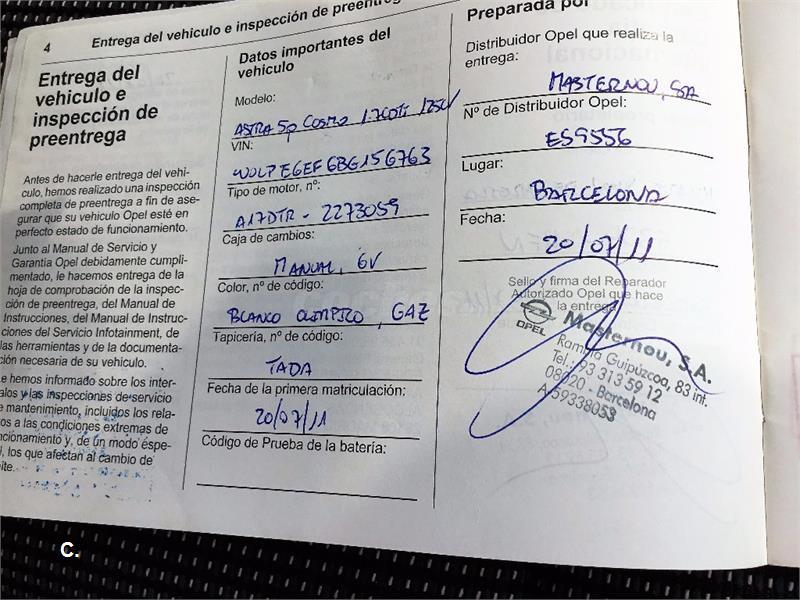 4
Entrega del vehiculo e inspección de preentrega
Entrega del
vehiculo e
inspección de
preentrega
Antes de hacerle entrega del vehi-
culo, hemos realizado una inspección
completa de preentrega a fin de ase-
gurar que su vehiculo Opel esté en
perfecto estado de funcionamiento.
Junto al Manual de Servicio y
Garantia Opel debidamente cumpli-
mentado, le hacemos entrega de la
hoja de comprobación de la inspec-
ción de preentrega, del Manual de
Instrucciones, del Manual de Instruc-
ciones del Servicio Infotainment, de
las herramientas y de la documenta-
ción necesaria de su vehiculo.
e hemos informado sobre los inter-
alos y las inspecciones de servicio
e mantenimiento, incluidos los rela-
os a las condiciones extremas de
ncionamiento y, de un modo espe-
l, los que afectan al cambio de
ite.
Datos importantes del
vehiculo
Modelo:
ASTRA 5p COSMO 1.7CDTi 125CV
VIN:
WOLPE6EF6BG156763
Tipo de motor, nº:
A17DTR - 2273059
Caja de cambios:
MANUAL, 6V
Color, nº de código:
BLANCO OLIMPICO, GAZ
Tapicería, nº de código:
TADA
Fecha de la primera matriculación:
20/07/11
Código de Prueba de la batería:
Preparada por
Distribuidor Opel que realiza la
entrega:
MASTERNOU, SA
Nº de Distribuidor Opel:
ES9556
Lugar:
BARCELONA
Fecha:
20/07/11
Sello y firma del Reparador
Autorizado Opel que hace
la entrega
OPEL
Masternou, S.A.
Rambla Guipúzcoa, 83 int.
Tel.: 93 313 59 12
08020 - Barcelona
A/59338053
C.